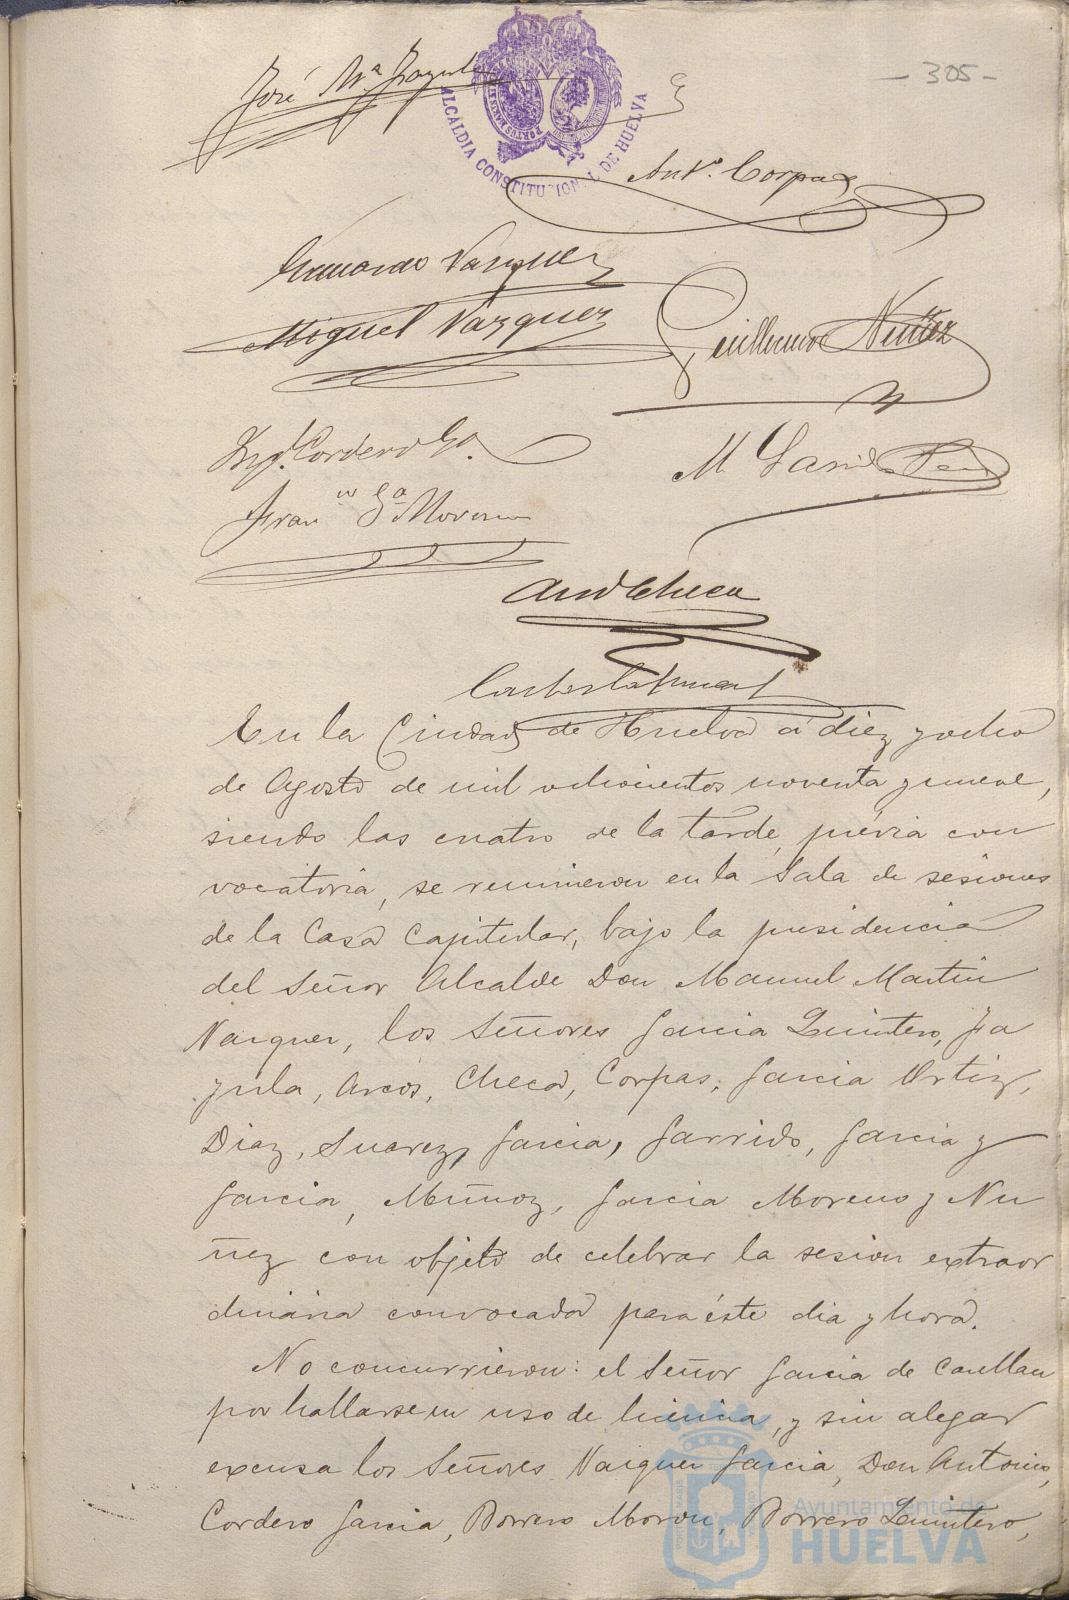 - 305 -
José Mª Jazula
ALCALDIA CONSTITUCIONAL DE HUELVA
Antº. Corpas
Vazquez
Miguel Vazquez
Guillermo Nuñez
Cordero Gª.
M Garrido
Franco Gª Moreno
Checa
En la Ciudad de Huelva á diez y ocho
de Agosto de mil ochocientos noventa y nueve,
siendo las cuatro de la tarde, prévia con
vocatoria, se reunieron en la Sala de sesiones
de la Casa Capitular, bajo la presidencia
del Señor Alcalde Don Manuel Martin
Vazquez, los Señores Garcia Quintero, Ja
zula, Arcos, Checa, Corpas, Garcia Ortiz,
Diaz, Suarez, Garcia, Garrido, Garcia y
Garcia, Muñoz, Garcia Moreno y Nu
ñez con objeto de celebrar la sesion extraor
dinária convocada para éste dia y hora.
No concurrieron: el Señor Garcia de Castellan
por hallarse en uso de licencia, y sin alegar
excusa los Señores Vazquez Garcia, Don Antonio,
Cordero Garcia, Borrero Moron, Borrero Quintero,
Ayuntamiento de
HUELVA